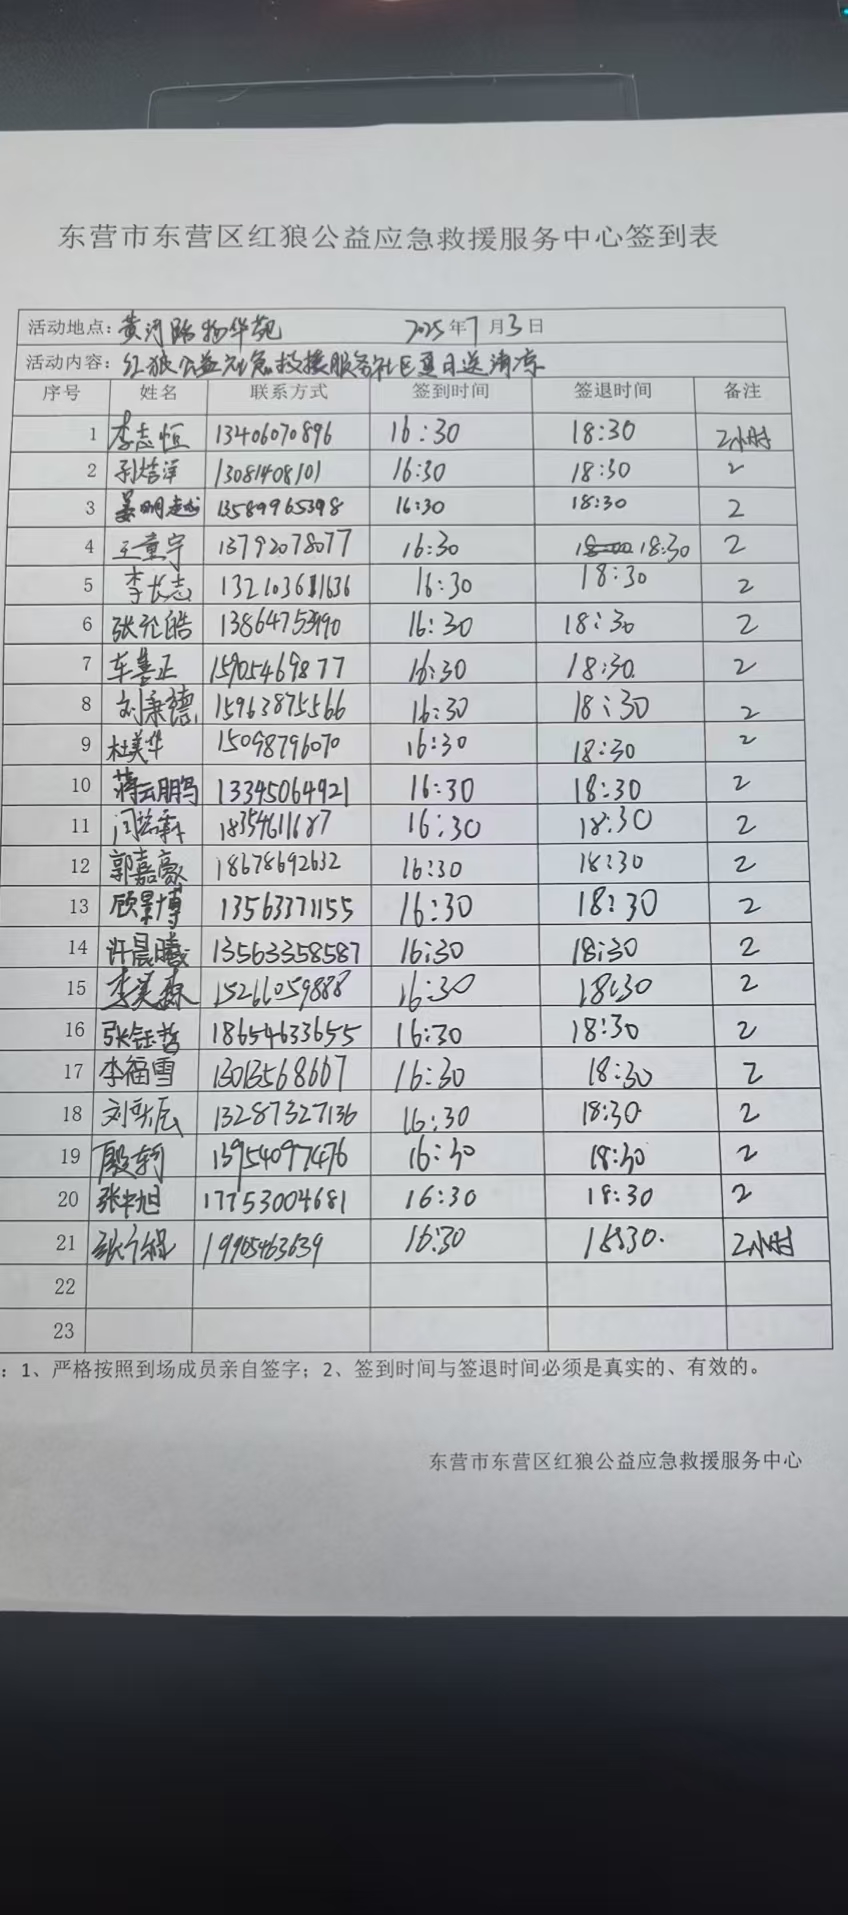 东营市东营区红狼公益应急救援服务中心签到表
活动地点：黄河路物华苑 2025年7月3日
活动内容：红狼公益应急救援服务社区夏日送清凉
序号 姓名 联系方式 签到时间 签退时间 备注
1 李志恒 13406070896 16:30 18:30 2小时
2 13081408101 16:30 18:30 2
3 姜明越 13589965398 16:30 18:30 2
4 王童宇 13792078077 16:30 18:30 2
5 李长志 16:30 18:30 2
6 16:30 18:30 2
7 车善正 15905469877 16:30 18:30 2
8 刘秉德 15963875566 16:30 18:30 2
9 杜美华 15098796070 16:30 18:30 2
10 蒋云鹏 13345064921 16:30 18:30 2
11 16:30 18:30 2
12 郭嘉豪 18678692632 16:30 18:30 2
13 顾景博 13563371155 16:30 18:30 2
14 许晨曦 13563358587 16:30 18:30 2
15 李美森 15266059888 16:30 18:30 2
16 张钰哲 18654633655 16:30 18:30 2
17 李福雪 16:30 18:30 2
18 13287327136 16:30 18:30 2
19 殷轲 13954097476 16:30 18:30 2
20 17753004681 16:30 18:30 2
21 16:30 18:30 2小时
22
23
：1、严格按照到场成员亲自签字；2、签到时间与签退时间必须是真实的、有效的。
东营市东营区红狼公益应急救援服务中心